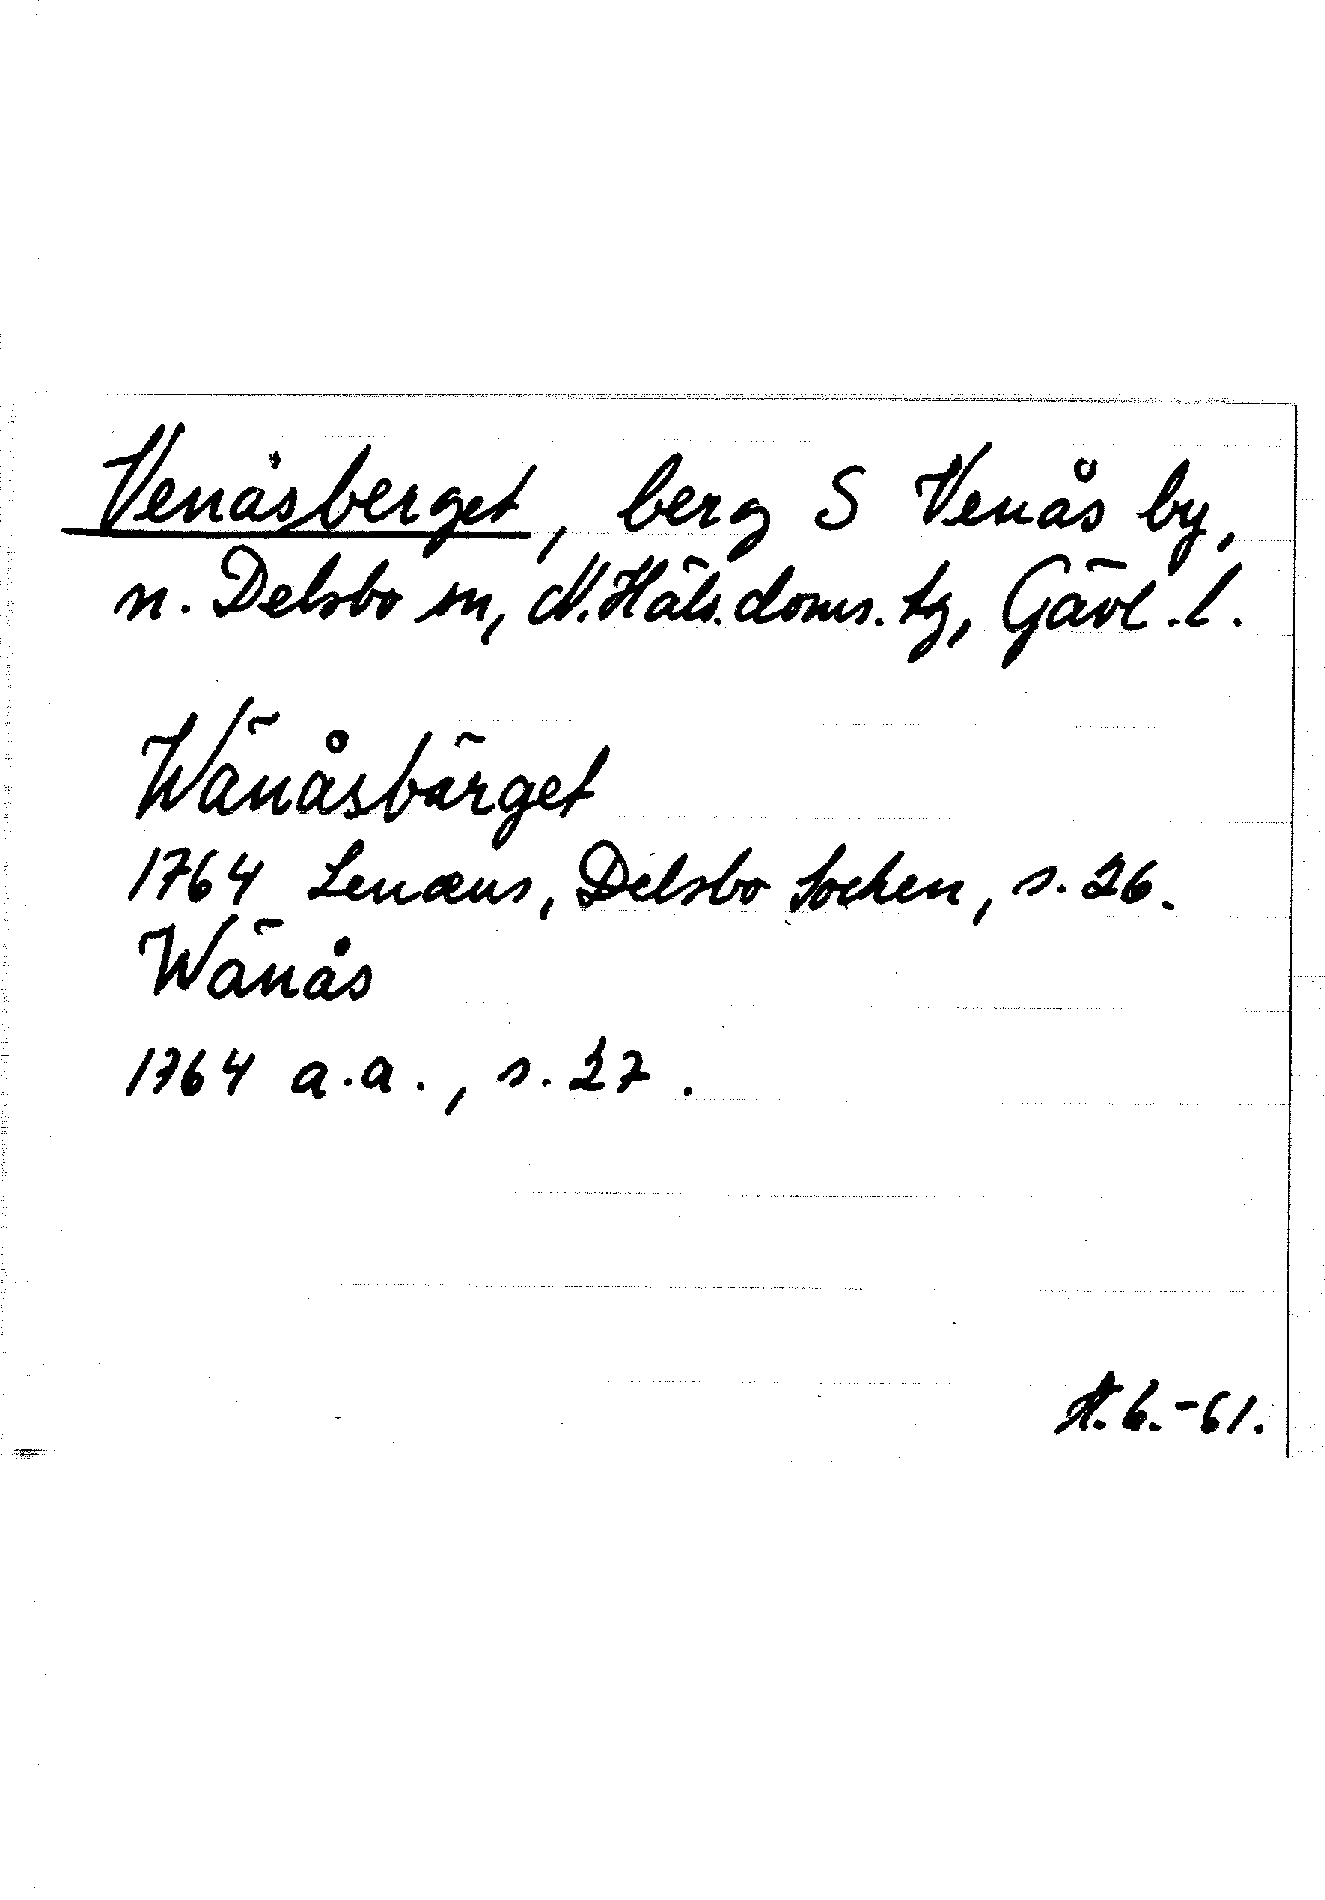 Venåsberget, berg S Venås by,
n. Delsbo sn, N.Häls.doms.tg, Gävl.l.
Wänåsbärget
1764 Lenæus, Delsbo Sochen, s. 26.
Wänås
1764 a.a., s. 27.
-61.